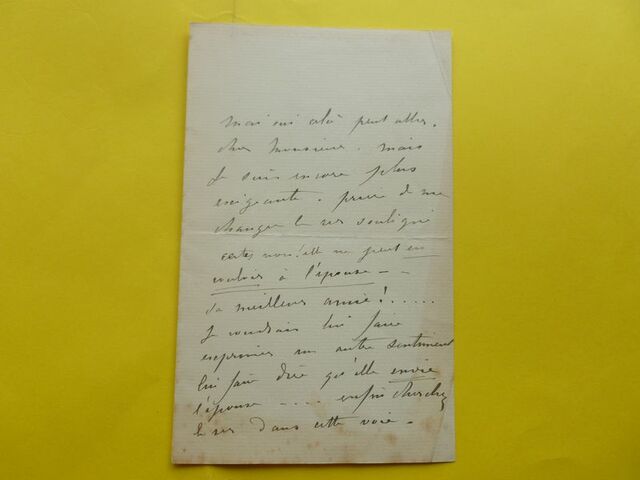 Mais oui cela peut aller,
cher Monsieur. mais
je suis encore plus
exigeante. prière de me
changer le vers souligné
certes non! elle ne peut en
vouloir à l'épouse —
sa meilleure amie!.....
Je voudrais lui faire
exprimer un autre sentiment
lui faire dire qu'elle envie
l'épouse — ... enfin cherchez
le vers dans cette voie —